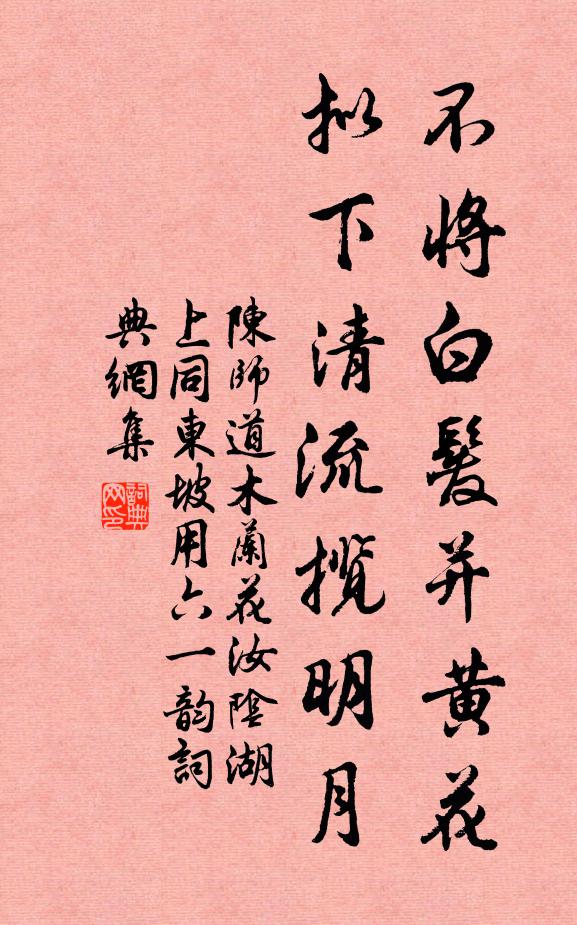 不將白髮并黃花
拟下清流揽明月
陳師道木蘭花汝陰湖
上同東坡用六一韵詞
典網集
詞典
网印